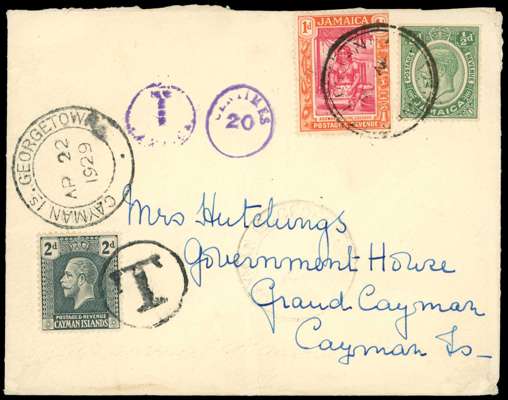 1d JAMAICA 1d
POSTAGE & REVENUE
½d
POSTAGE
REVENUE
JAMAICA
T
CENTIMES
20
GEORGETOWN
AP 22
1929
CAYMAN IS.
Mrs Hutchings
Government House
Grand Cayman
Cayman Is-
2d 2d
POSTAGE & REVENUE
CAYMAN ISLANDS
T